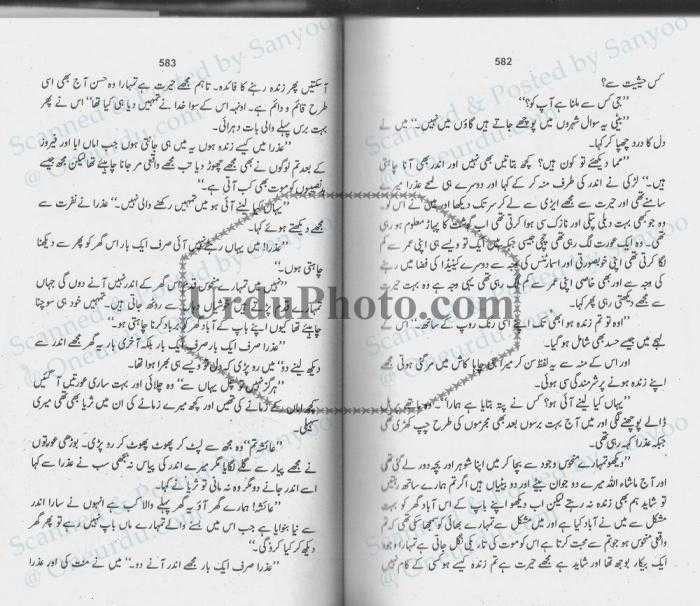 582
کس حیثیت سے؟
”جی کس سے ملنا ہے آپ کو؟“
”بیٹی یہ سوال شہروں میں پوچھے جاتے ہیں گاؤں میں نہیں۔“ میں نے
دل کا درد چھپا کر کہا۔
”مما دیکھئے تو کون ہیں؟ کچھ بتاتیں بھی نہیں اور اندر بھی آنا چاہتی
ہیں۔“ لڑکی نے اندر کی طرف منہ کر کے کہا اور دوسرے ہی لمحے عذرا میرے
سامنے تھی اور حیرت سے مجھے ایڑی سے لے کر سر تک دیکھا اور میں نے اس کو۔
وہ جو کبھی بہت دبلی پتلی اور نازک سی ہوا کرتی تھی اب گوشت کا پہاڑ معلوم ہو رہی
تھی۔ وہ ایک عورت لگ رہی تھی پکی جیسی جبکہ میں ایک تو ویسے ہی اپنی عمر سے کم
لگا کرتی تھی اپنی خوبصورتی اور اسمارٹنس کی وجہ سے دوسرے کینیڈا کی فضا میں رہنے
کی وجہ سے بھی خاصی اپنی عمر سے کم لگ رہی تھی یہی وجہ ہے وہ بہت حیرت
سے مجھے دیکھتی رہی پھر کہا۔
”اوہ تو تم زندہ ہو ابھی تک اپنے اسی رنگ روپ کے ساتھ۔“ اس کے
لہجے میں جیسے حسد بھی شامل ہو گیا۔
اور اس کے منہ سے یہ لفظ سن کر میرا جی چاہا کاش میں مر گئی ہوتی مجھے
اپنے زندہ ہونے پر شرمندگی سی ہوئی۔
”یہاں کیا لینے آئی ہو؟ کس نے پتہ بتایا ہے ہمارا“۔ وہ ماتھے پر بل
ڈالے پوچھنے لگی اور میں آج بہت برسوں بعد بھی مجرموں کی طرح چپ کھڑی تھی
جبکہ عذرا کہہ رہی تھی۔
”دیکھو تمہارے منحوس وجود سے بچا کر میں اپنا شوہر اور بچہ دور لے گئی تھی
اور آج ماشاء اللہ میرے دو جوان بیٹے اور دو بیٹیاں ہیں اگر تم ہمارے ساتھ رہتیں
تو شاید ہم بھی زندہ نہ رہتے لیکن اب دیکھو اپنے باپ کے اس آباد گھر کو بہت
مشکل سے میں نے آباد کیا ہے اور میں مشکل سے تمہارے بھائی کو سمجھا سکی تھی کہ تم
واقعی منحوس ہو جو تم سے محبت کرتا ہے اس کو موت کی تاریکی نگل جاتی ہے تمہارا وجود
ایک بیکار بوجھ تھا اور شاید ہے مجھے حیرت ہے تم زندہ کیسے ہو کسی کے کام نہیں
583
آ سکتیں پھر زندہ رہنے کا فائدہ۔ تاہم مجھے حیرت ہے تمہارا وہ حسن آج بھی اسی
طرح قائم و دائم ہے۔ اونہہ اس کے سوا خدا نے تمہیں دیا ہی کیا تھا“ اس نے پھر
بہت برس پہلے والی بات دہرائی۔
”عذرا میں کیسے زندہ ہوں یہ میں ہی جانتی ہوں جب اماں ابا اور فیروز
کے بعد تم لوگوں نے بھی مجھے چھوڑ دیا تب مجھے واقعی مر جانا چاہئے تھا لیکن مجھ جیسے
نصیبوں کو موت بھی کب آتی ہے۔“
”یہاں کیا لینے آئی ہو میں تمہیں رکھنے والی نہیں۔“ عذرا نے نفرت سے
مجھے دیکھتے ہوئے کہا۔
”عذرا! میں یہاں رہنے نہیں آئی صرف ایک بار اس گھر کو پھر سے دیکھنا
چاہتی ہوں۔“
”نہیں میں تمہارے منحوس قدم اس گھر کے اندر نہیں آنے دوں گی جہاں
تمہارے قدم پڑتے ہیں خوشیاں سے روٹھ جاتی ہیں۔ تمہیں خود ہی سوچنا
چاہیئے تھا کیوں اپنے باپ کے آباد گھر کو برباد کرنا چاہتی ہو۔“
”عذرا صرف ایک بار صرف ایک بار بلکہ آخری بار یہ گھر مجھے اندر سے
دیکھ لینے دو“ میں رو پڑی کہ دل تو ویسے ہی بھرا ہوا تھا۔
”ہرگز نہیں تو چلی یہاں سے“ وہ چلائی اور بہت ساری عورتیں آ گئیں
کچھ اماں کے زمانے کی تھیں اور کچھ میرے زمانے کی ان میں ثریا بھی تھی میری
سہیلی۔
”عائشہ تم“ وہ مجھ سے لپٹ کر پھوٹ پھوٹ کر رو پڑی۔ بوڑھی عورتوں
نے مجھے پیار سے گلے لگایا مگر میرے اندر کی پیاس نہ بجھی سب نے عذرا سے کہا
اسے اندر جانے دو مگر وہ نہ مانی تو ثریا نے کہا۔
”عائشہ! ہمارے گھر آؤ یہ گھر پہلے والا کب ہے انہوں نے سارا اندر
سے نیا بنوایا ہے جب اس میں بسنے والے تمہارے ماں باپ نہیں رہے تو پھر گھر
دیکھ کر کیا کرو گی۔“
”عذرا صرف ایک بار مجھے اندر آنے دو۔“ میں نے منت کی اور عذرا
UrduPhoto.com
Scanned & Posted by Sanyoo
@ Oneurdu.com